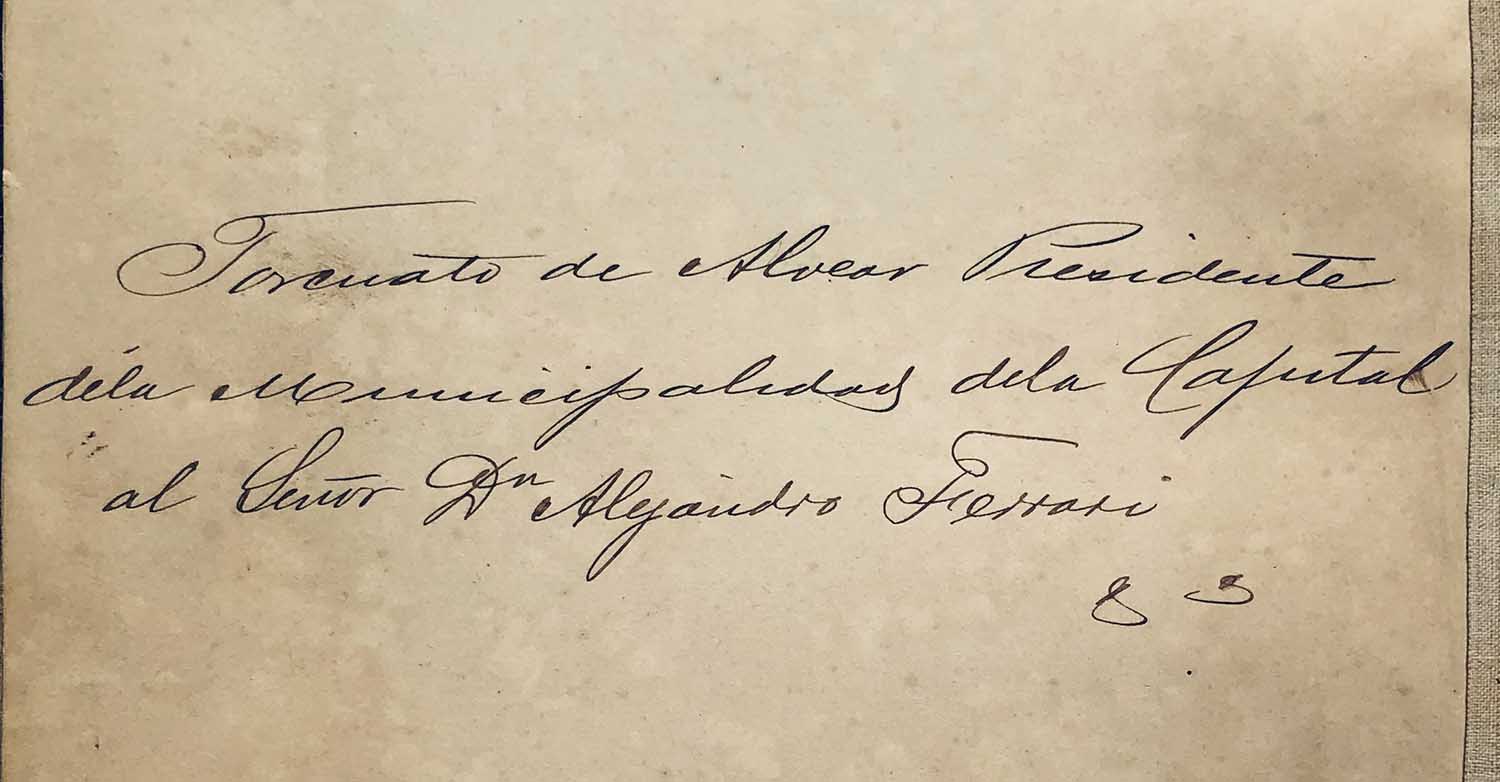 Torcuato de Alvear Presidente
dela Municipalidad dela Capital
al Señor Dn Alejandro Ferrari